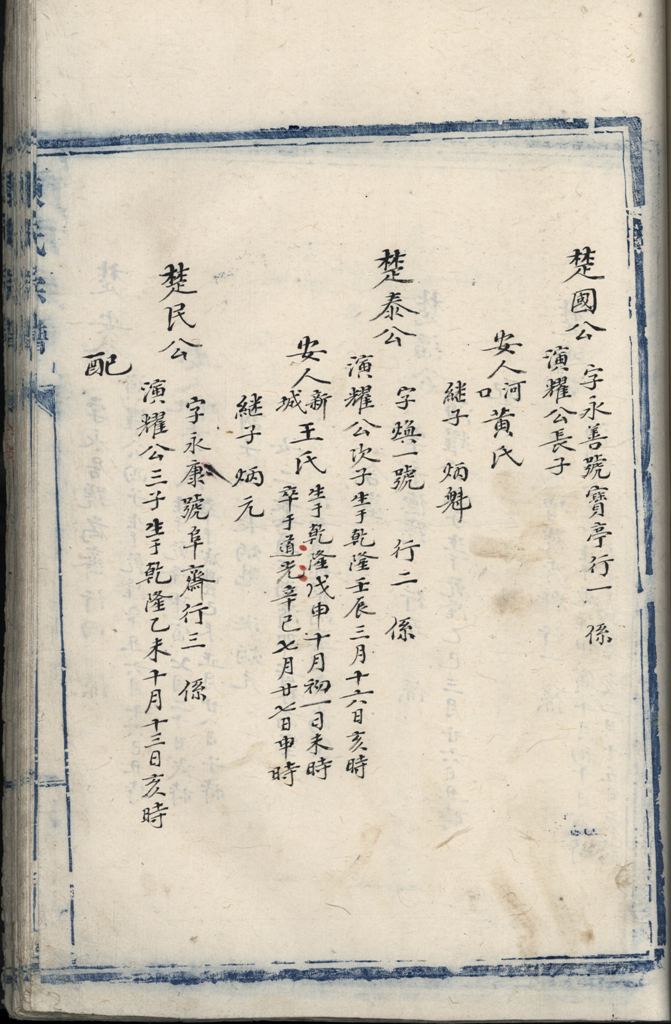 楚國公
字永善號寶亭行一 係
演耀公長子
安人河口黃氏
継子 炳魁
楚泰公
字煥一號 行二 係
演耀公次子生于乾隆壬辰三月十六日亥時
安人新城王氏
生于乾隆戊申十月初一日未時
卒于道光辛巳七月廿七日申時
継子 炳元
楚民公
字永康號阜齋行三 係
演耀公三子生于乾隆乙未十月十三日亥時
配